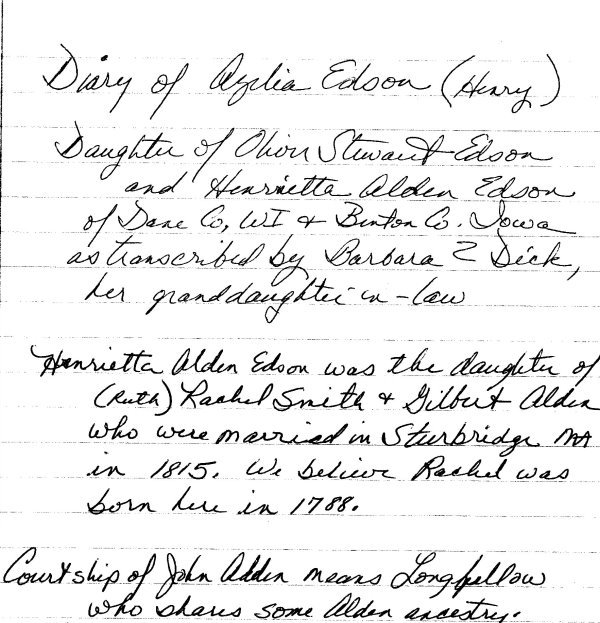 Diary of Azelia Edson (Henry)
Daughter of Oliver Stewart Edson
and Henrietta Alden Edson
of Dane Co, WI & Benton Co. Iowa
as transcribed by Barbara Z Dick,
her granddaughter-in-law
Henrietta Alden Edson was the daughter of
(Ruth) Rachel Smith & Gilbert Alden
who were married in Sturbridge MA
in 1815. We believe Rachel was
born here in 1788.
Courtship of John Alden means Longfellow
who shares some Alden ancestry.